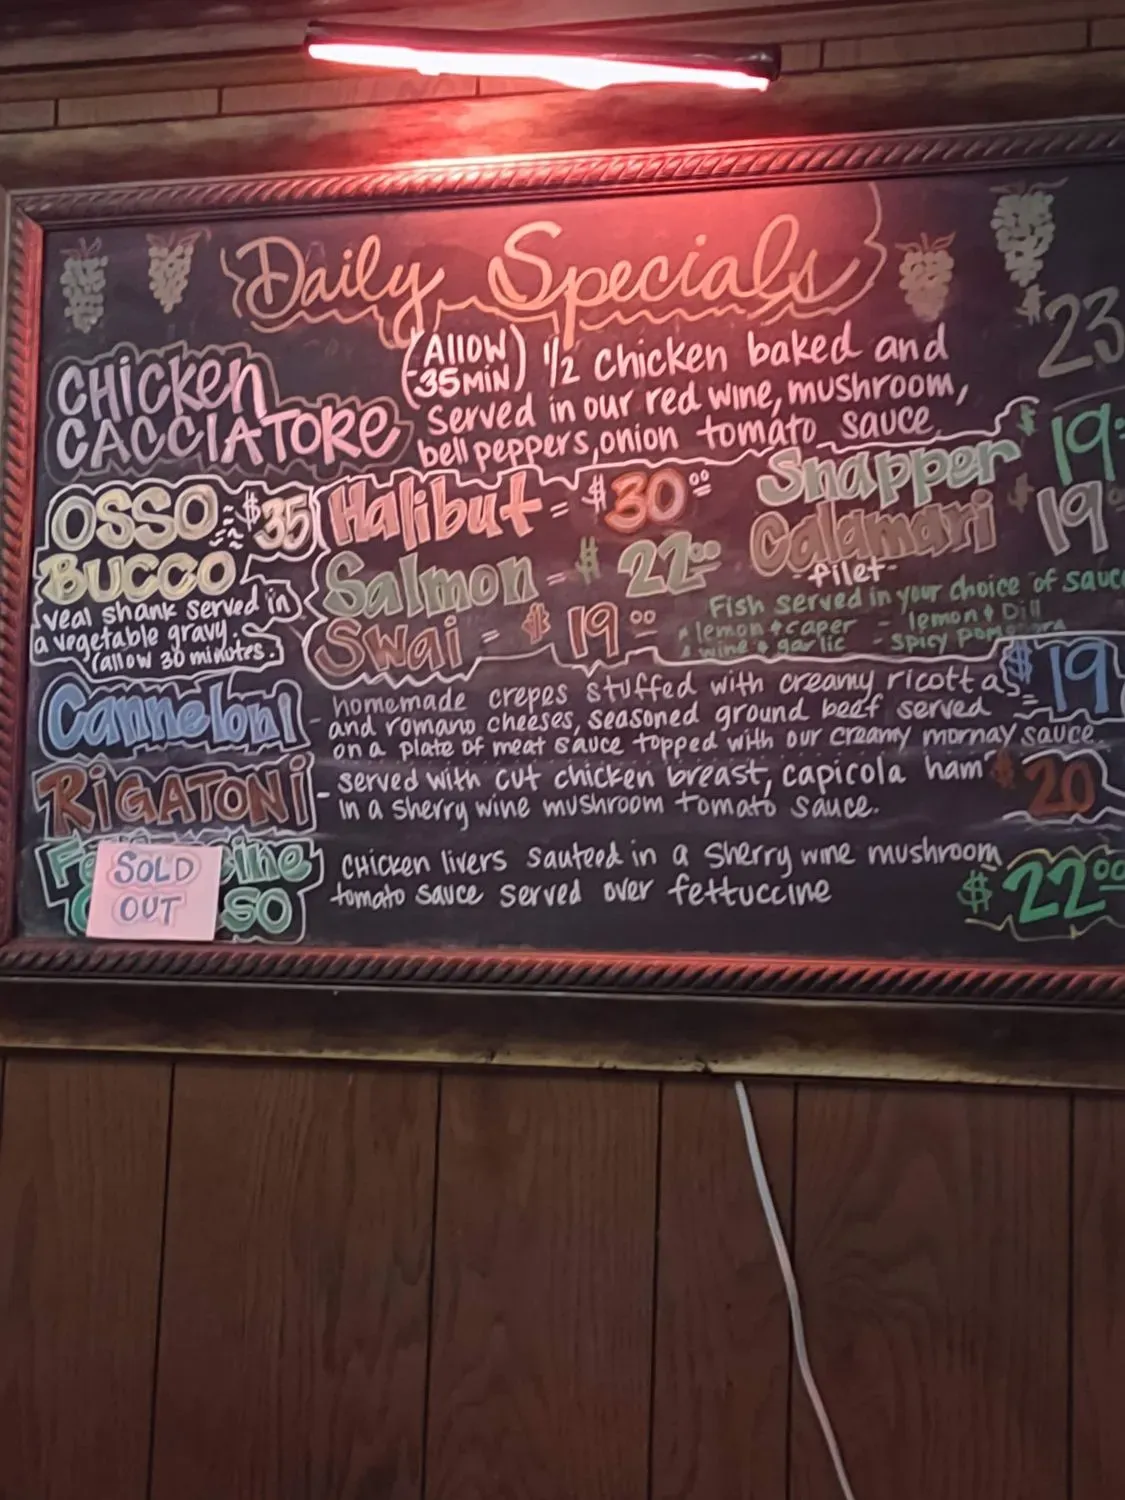 Daily Specials
CHICKEN
CACCIATORE
(Allow
35 MIN)
1/2 chicken baked and
served in our red wine, mushroom,
bell peppers, onion tomato sauce.
$23
OSSO
BUCCO
= $35
veal shank served in
a vegetable gravy.
(allow 30 minutes.)
Halibut = $30.00
Salmon = $22.00
Swai = $19.00
Snapper $19
Calamari $19
-filet-
Fish served in your choice of sauce
* lemon & caper - lemon & Dill
* wine & garlic - spicy
Canneloni - homemade crepes stuffed with creamy ricotta
and romano cheeses, seasoned ground beef served
on a plate of meat sauce topped with our creamy mornay sauce
$19
RIGATONI - served with cut chicken breast, capicola ham
in a sherry wine mushroom tomato sauce.
$20
SOLD
OUT
CHicken livers sauteed in a sherry wine mushroom
tomato sauce served over fettuccine
$22.00